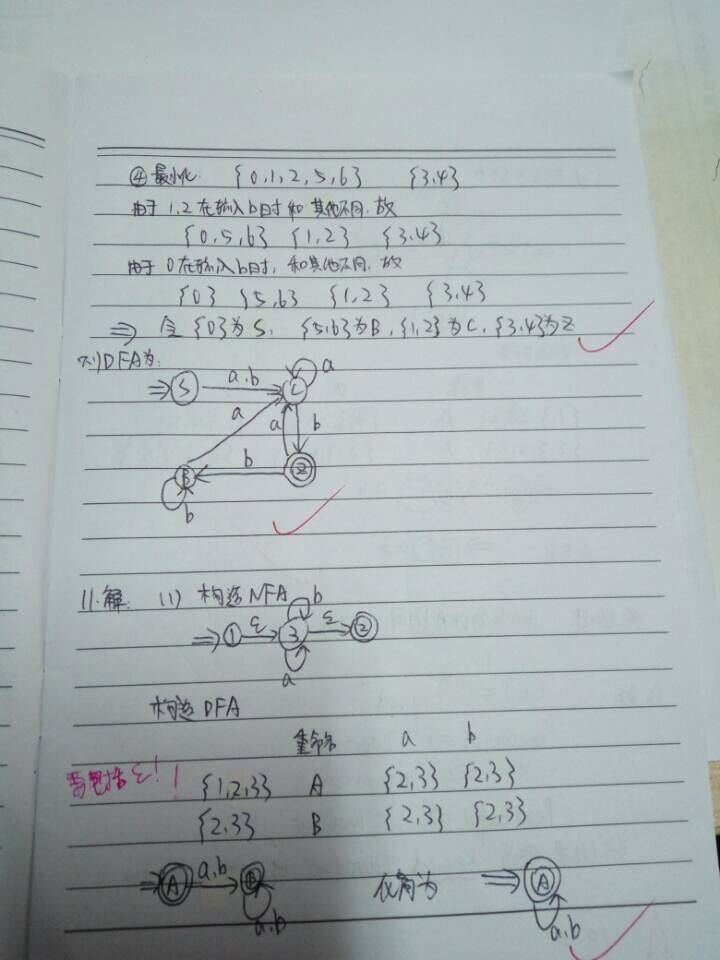 ④最小化: {0,1,2,5,6} {3,4}
由于1,2在输入b时和其他不同,故
{0,5,6} {1,2} {3,4}
由于0在输入b时,和其他不同,故
{0} {5,6} {1,2} {3,4}
⇒ 令{0}为S, {5,6}为B,{1,2}为C,{3,4}为Z
则DFA为:
a
⇒ S a,b C
a a b
B b Z
b
11.解: (1) 构造NFA
b
⇒ 1 ε 3 ε 2
a
构造DFA
重命名 a b
要包括ε!!
{1,2,3} A {2,3} {2,3}
{2,3} B {2,3} {2,3}
⇒ A a,b B 化简为 ⇒ A
a,b a,b